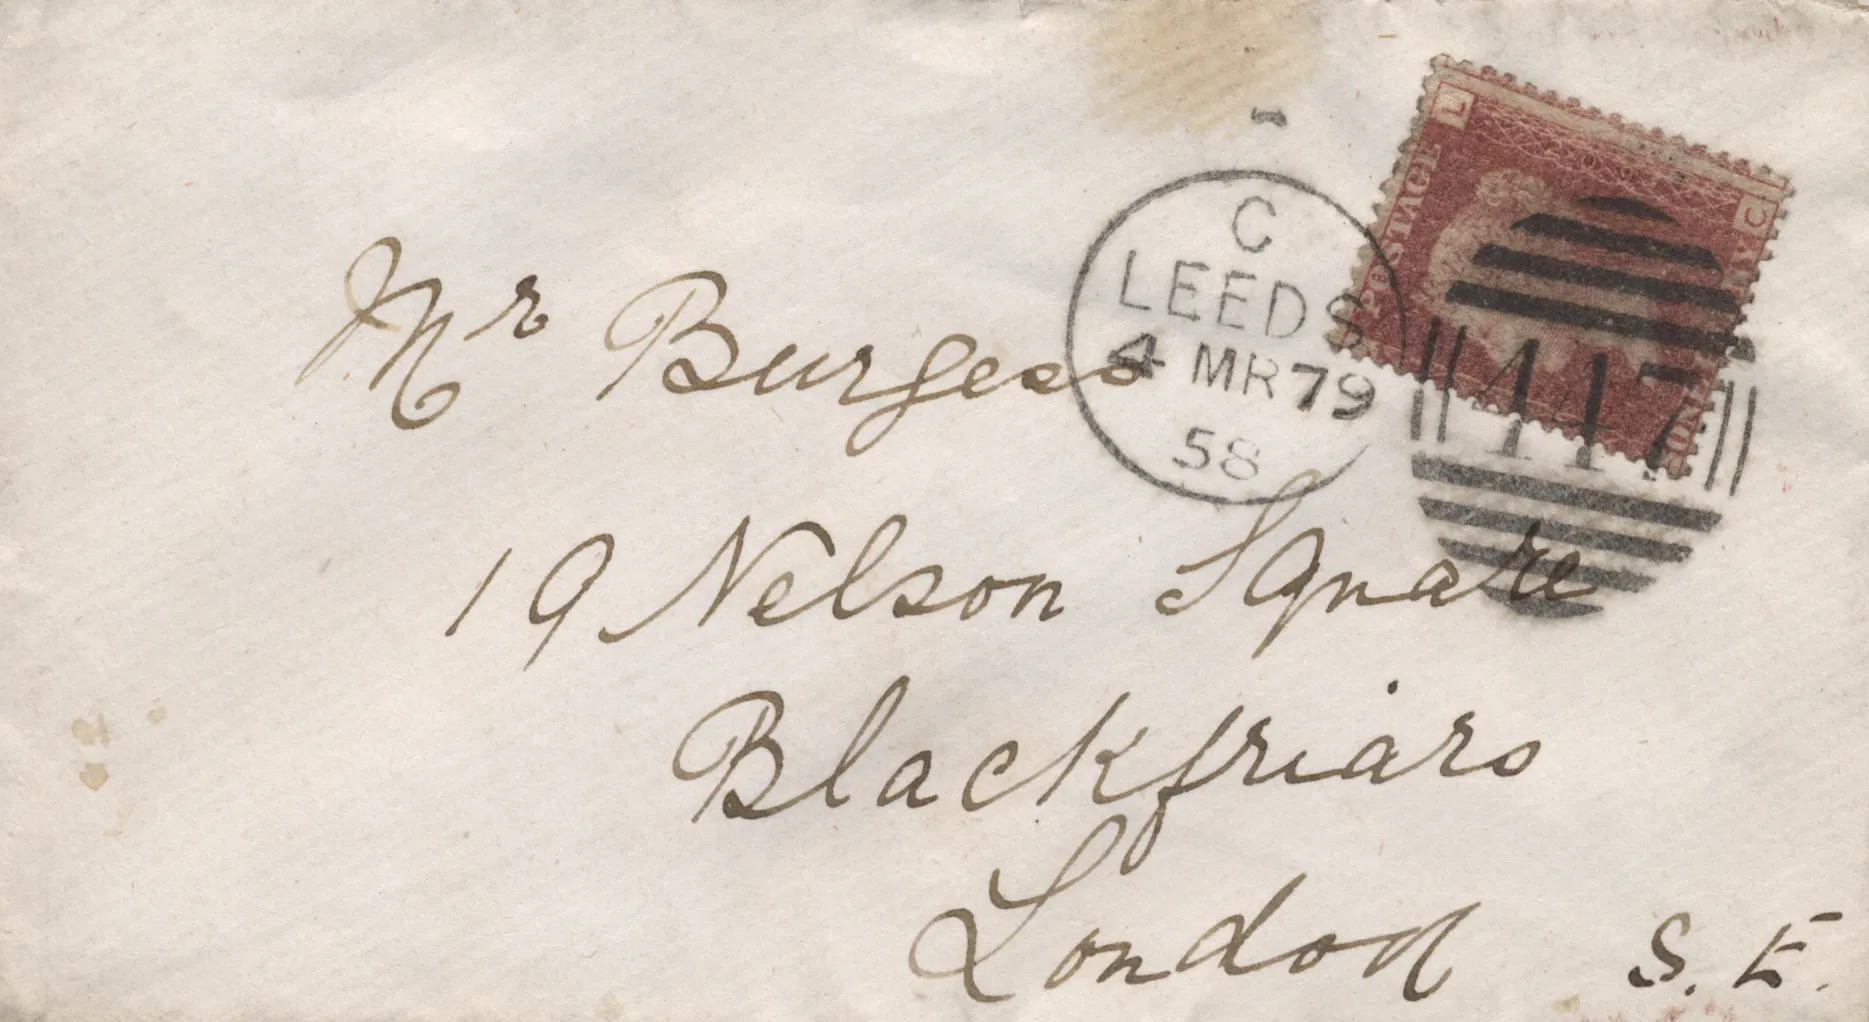 L
C
POSTAGE
ONE
C
LEEDS
4 MR 79
58
447
Mr Burgess
19 Nelson Square
Blackfriars
London S.E.